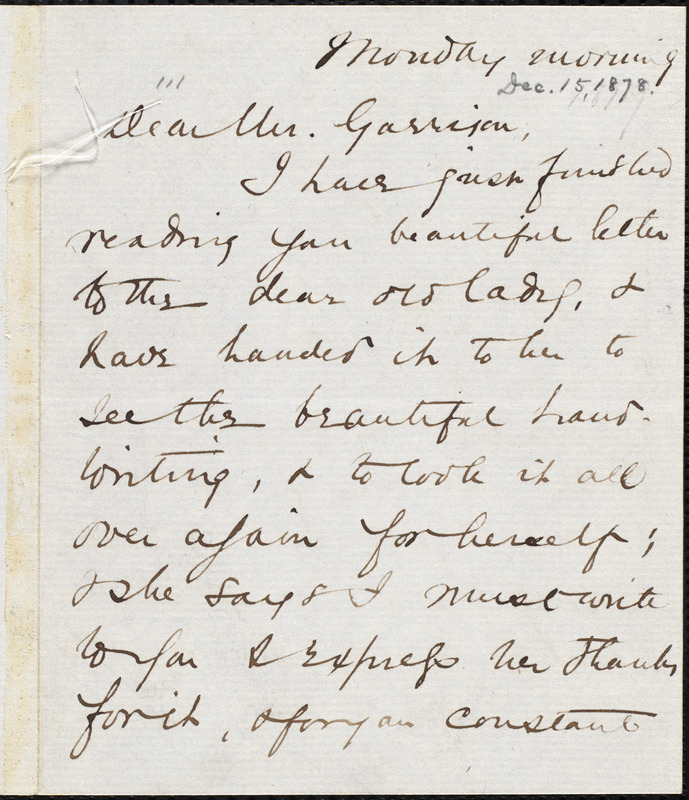 Monday morning
Dec. 15, 1878.
Dear Mr. Garrison,
I have just finished
reading your beautiful letter
to the dear old lady, &
have handed it to her to
see the beautiful hand-
writing, & to look it all
over again for herself;
& she says I must write
to you & express her thanks
for it, & for your constant